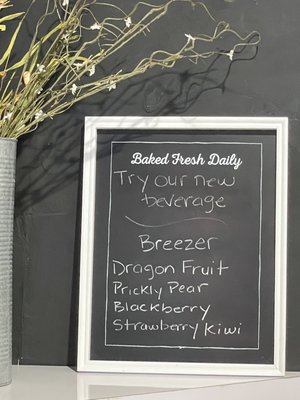 Baked Fresh Daily
Try our new
beverage
Breezer
Dragon Fruit
Prickly Pear
Blackberry
Strawberry Kiwi